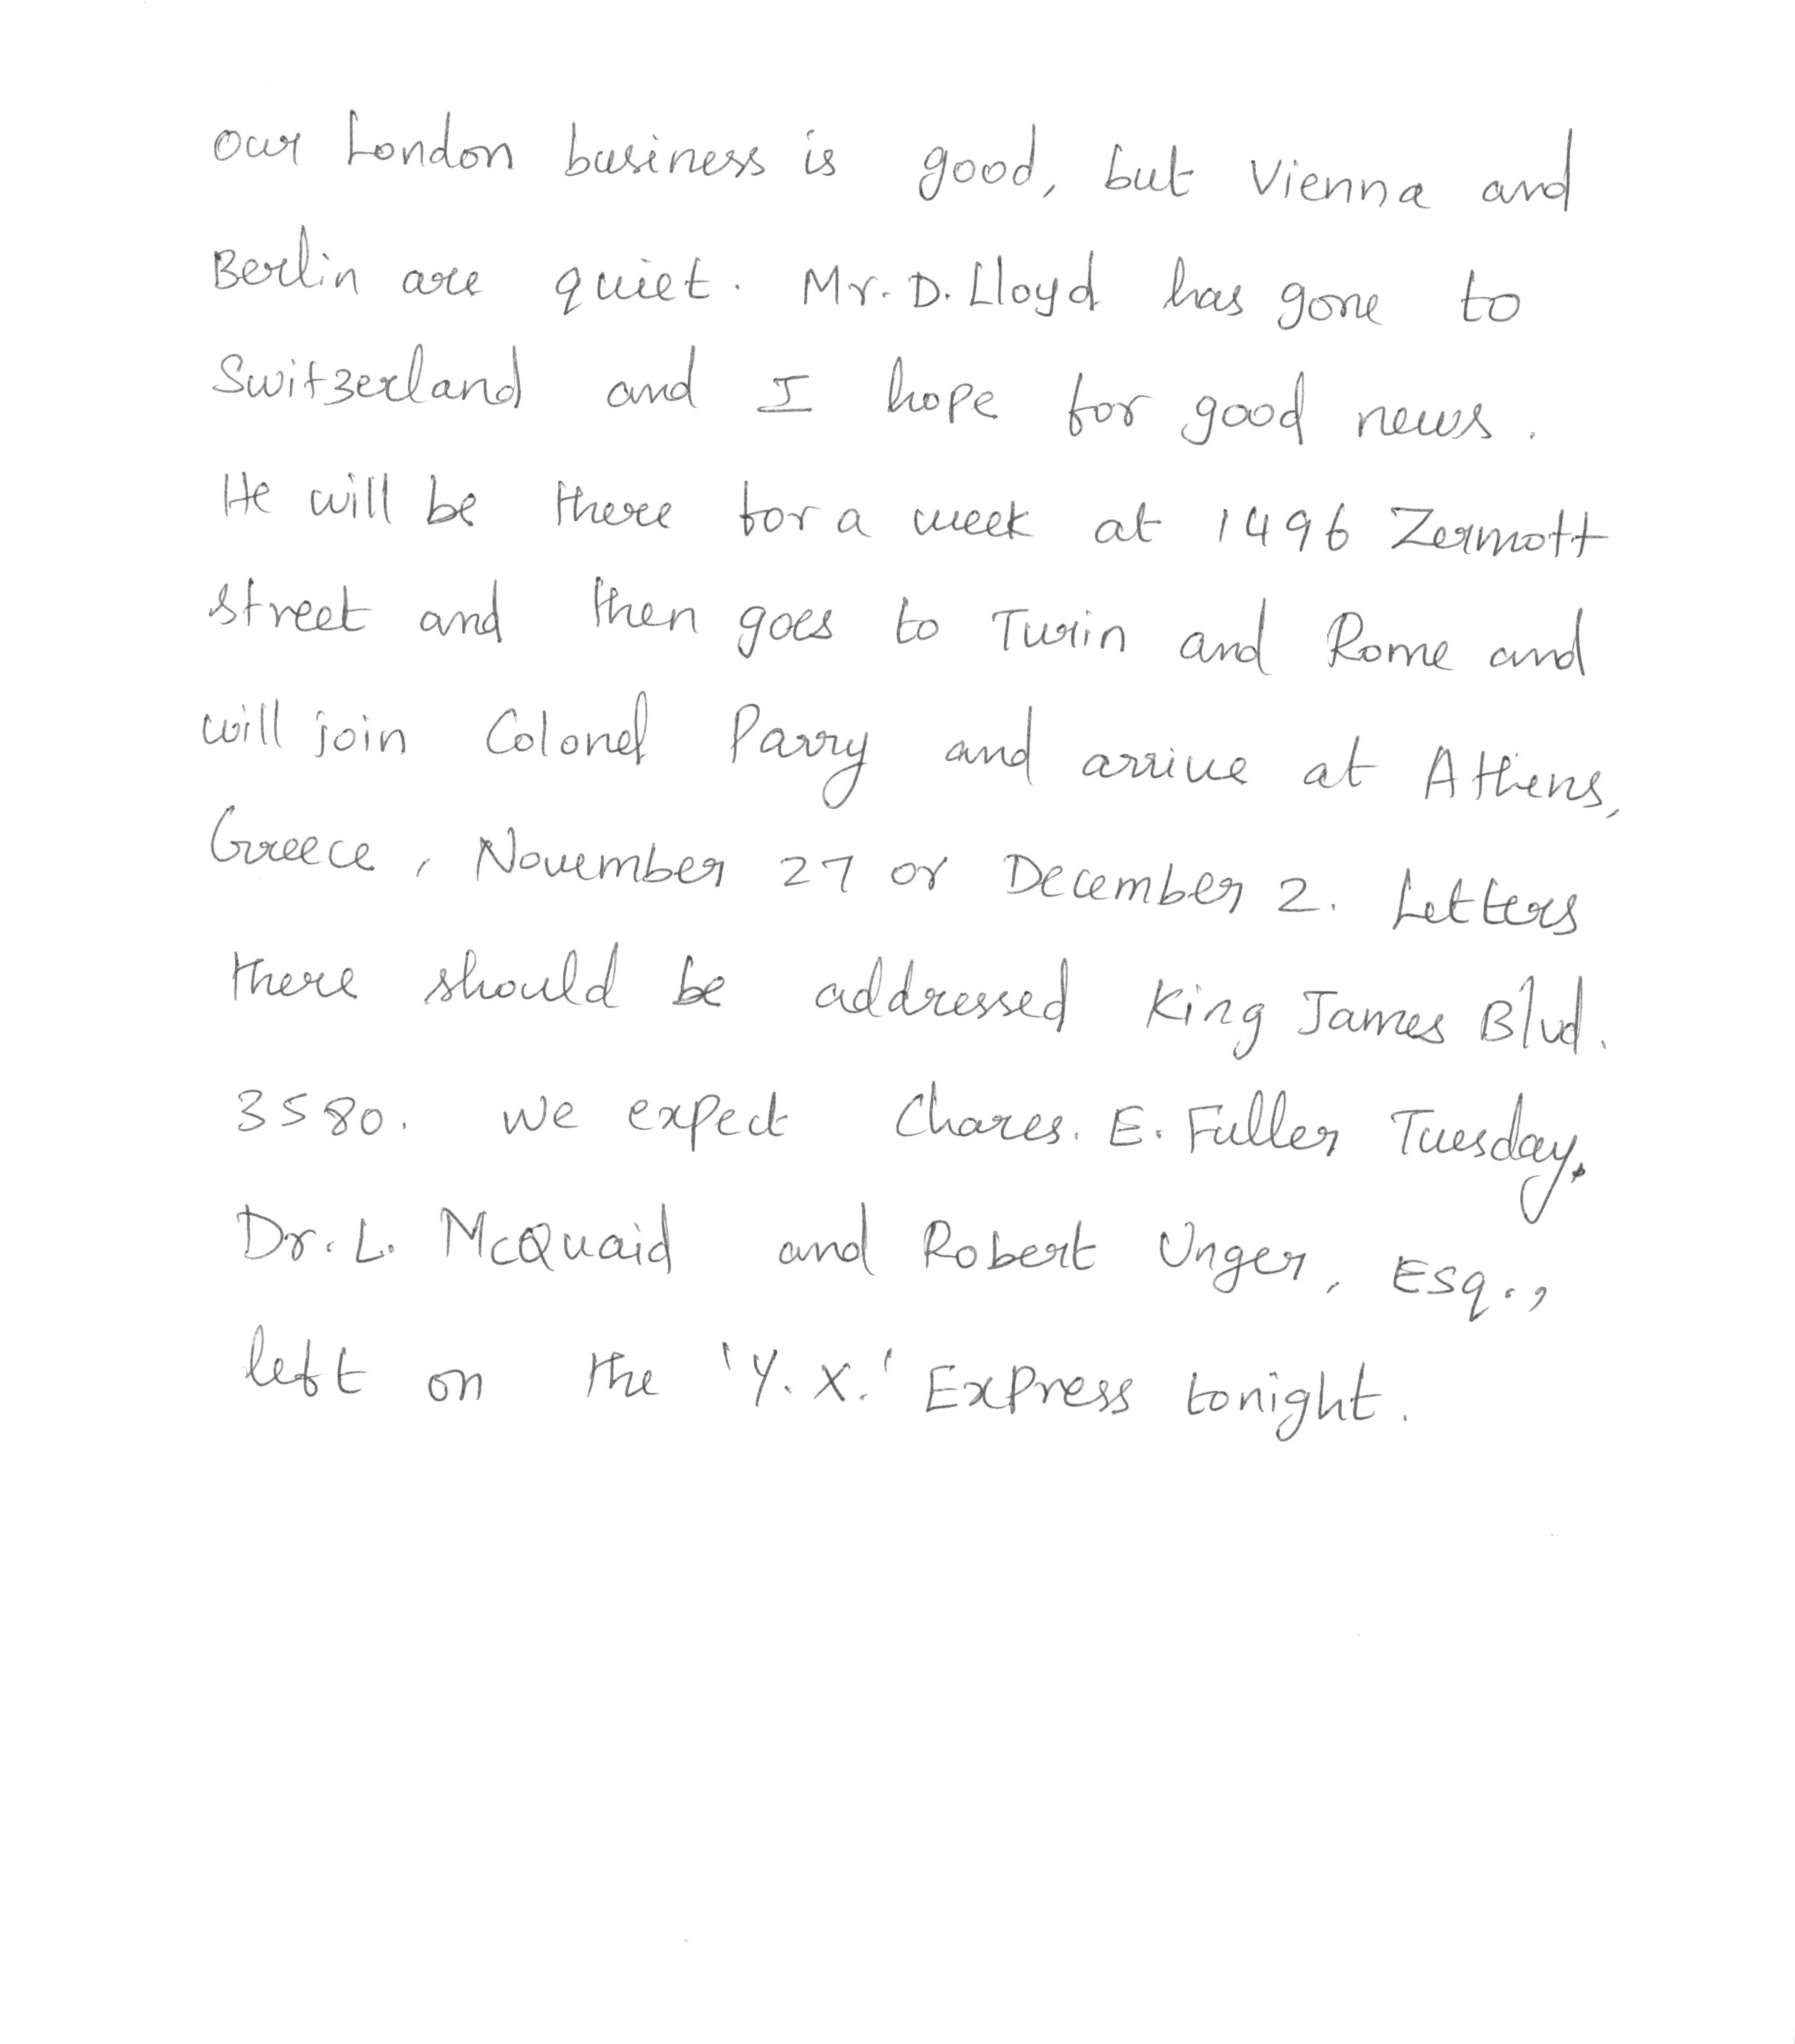 our London business is good, but Vienna and
Berlin are quiet. Mr. D. Lloyd has gone to
Switzerland and I hope for good news.
He will be there for a week at 1496 Zermott
street and then goes to Turin and Rome and
will join Colonel Parry and arrive at Athens,
Greece, November 27 or December 2. Letters
there should be addressed King James Blvd.
3580. We expect Chares. E. Fuller Tuesday.
Dr. L. McQuaid and Robert Unger, Esq.,
left on the 'Y. X.' Express tonight.